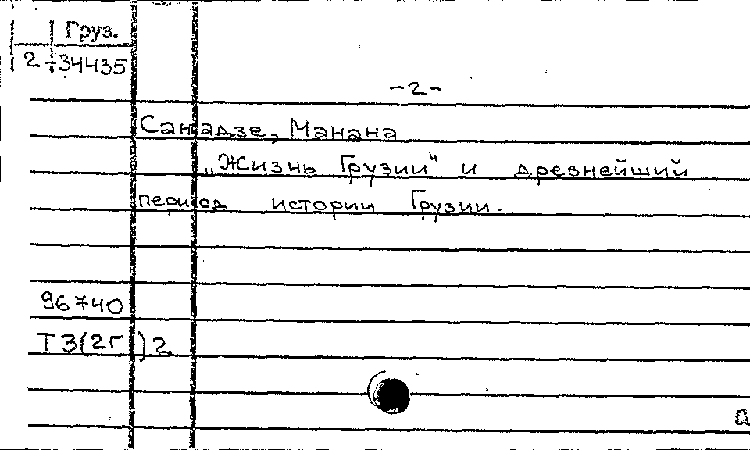 Груз.
2-34435
-2-
Санадзе, Манана
„Жизнь Грузии" и древнейший
период истории Грузии.
96740
Т3(2Г)2